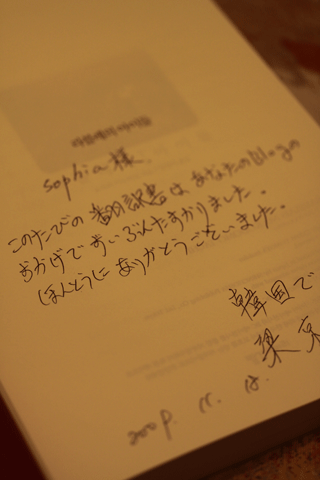 sophia 様
このたびの 翻訳書は あなたのBlogの
おかげで ずいぶんたすかりました。
ほんとうに ありがとうございました。
韓国で
梁 京
2009. 11. 18.